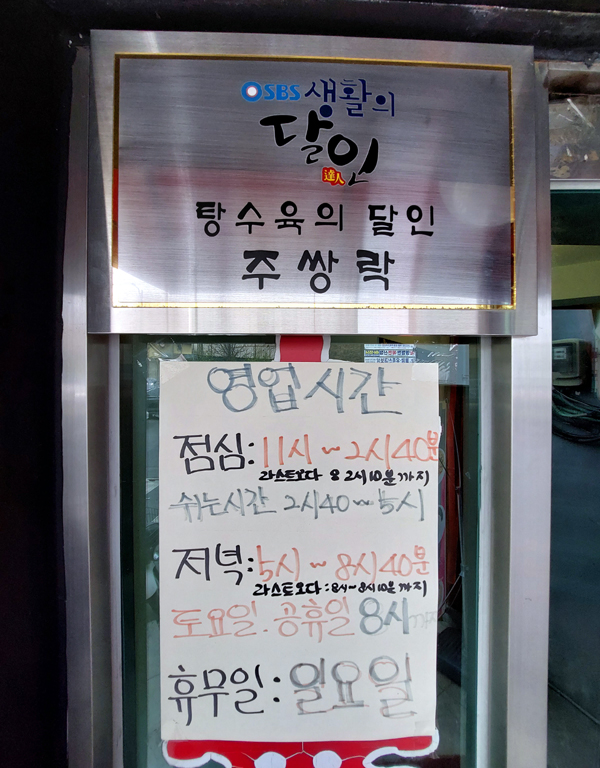 SBS 생활의
달인
達人
탕수육의 달인
주쌍락
영업시간
점심:11시~2시40분
라스트오다 용 2시10분까지
쉬는시간 2시40~5시
저녁:5시~8시40분
라스트오다:8시~8시10분까지
토요일.공휴일 8시까지
휴무일:일요일